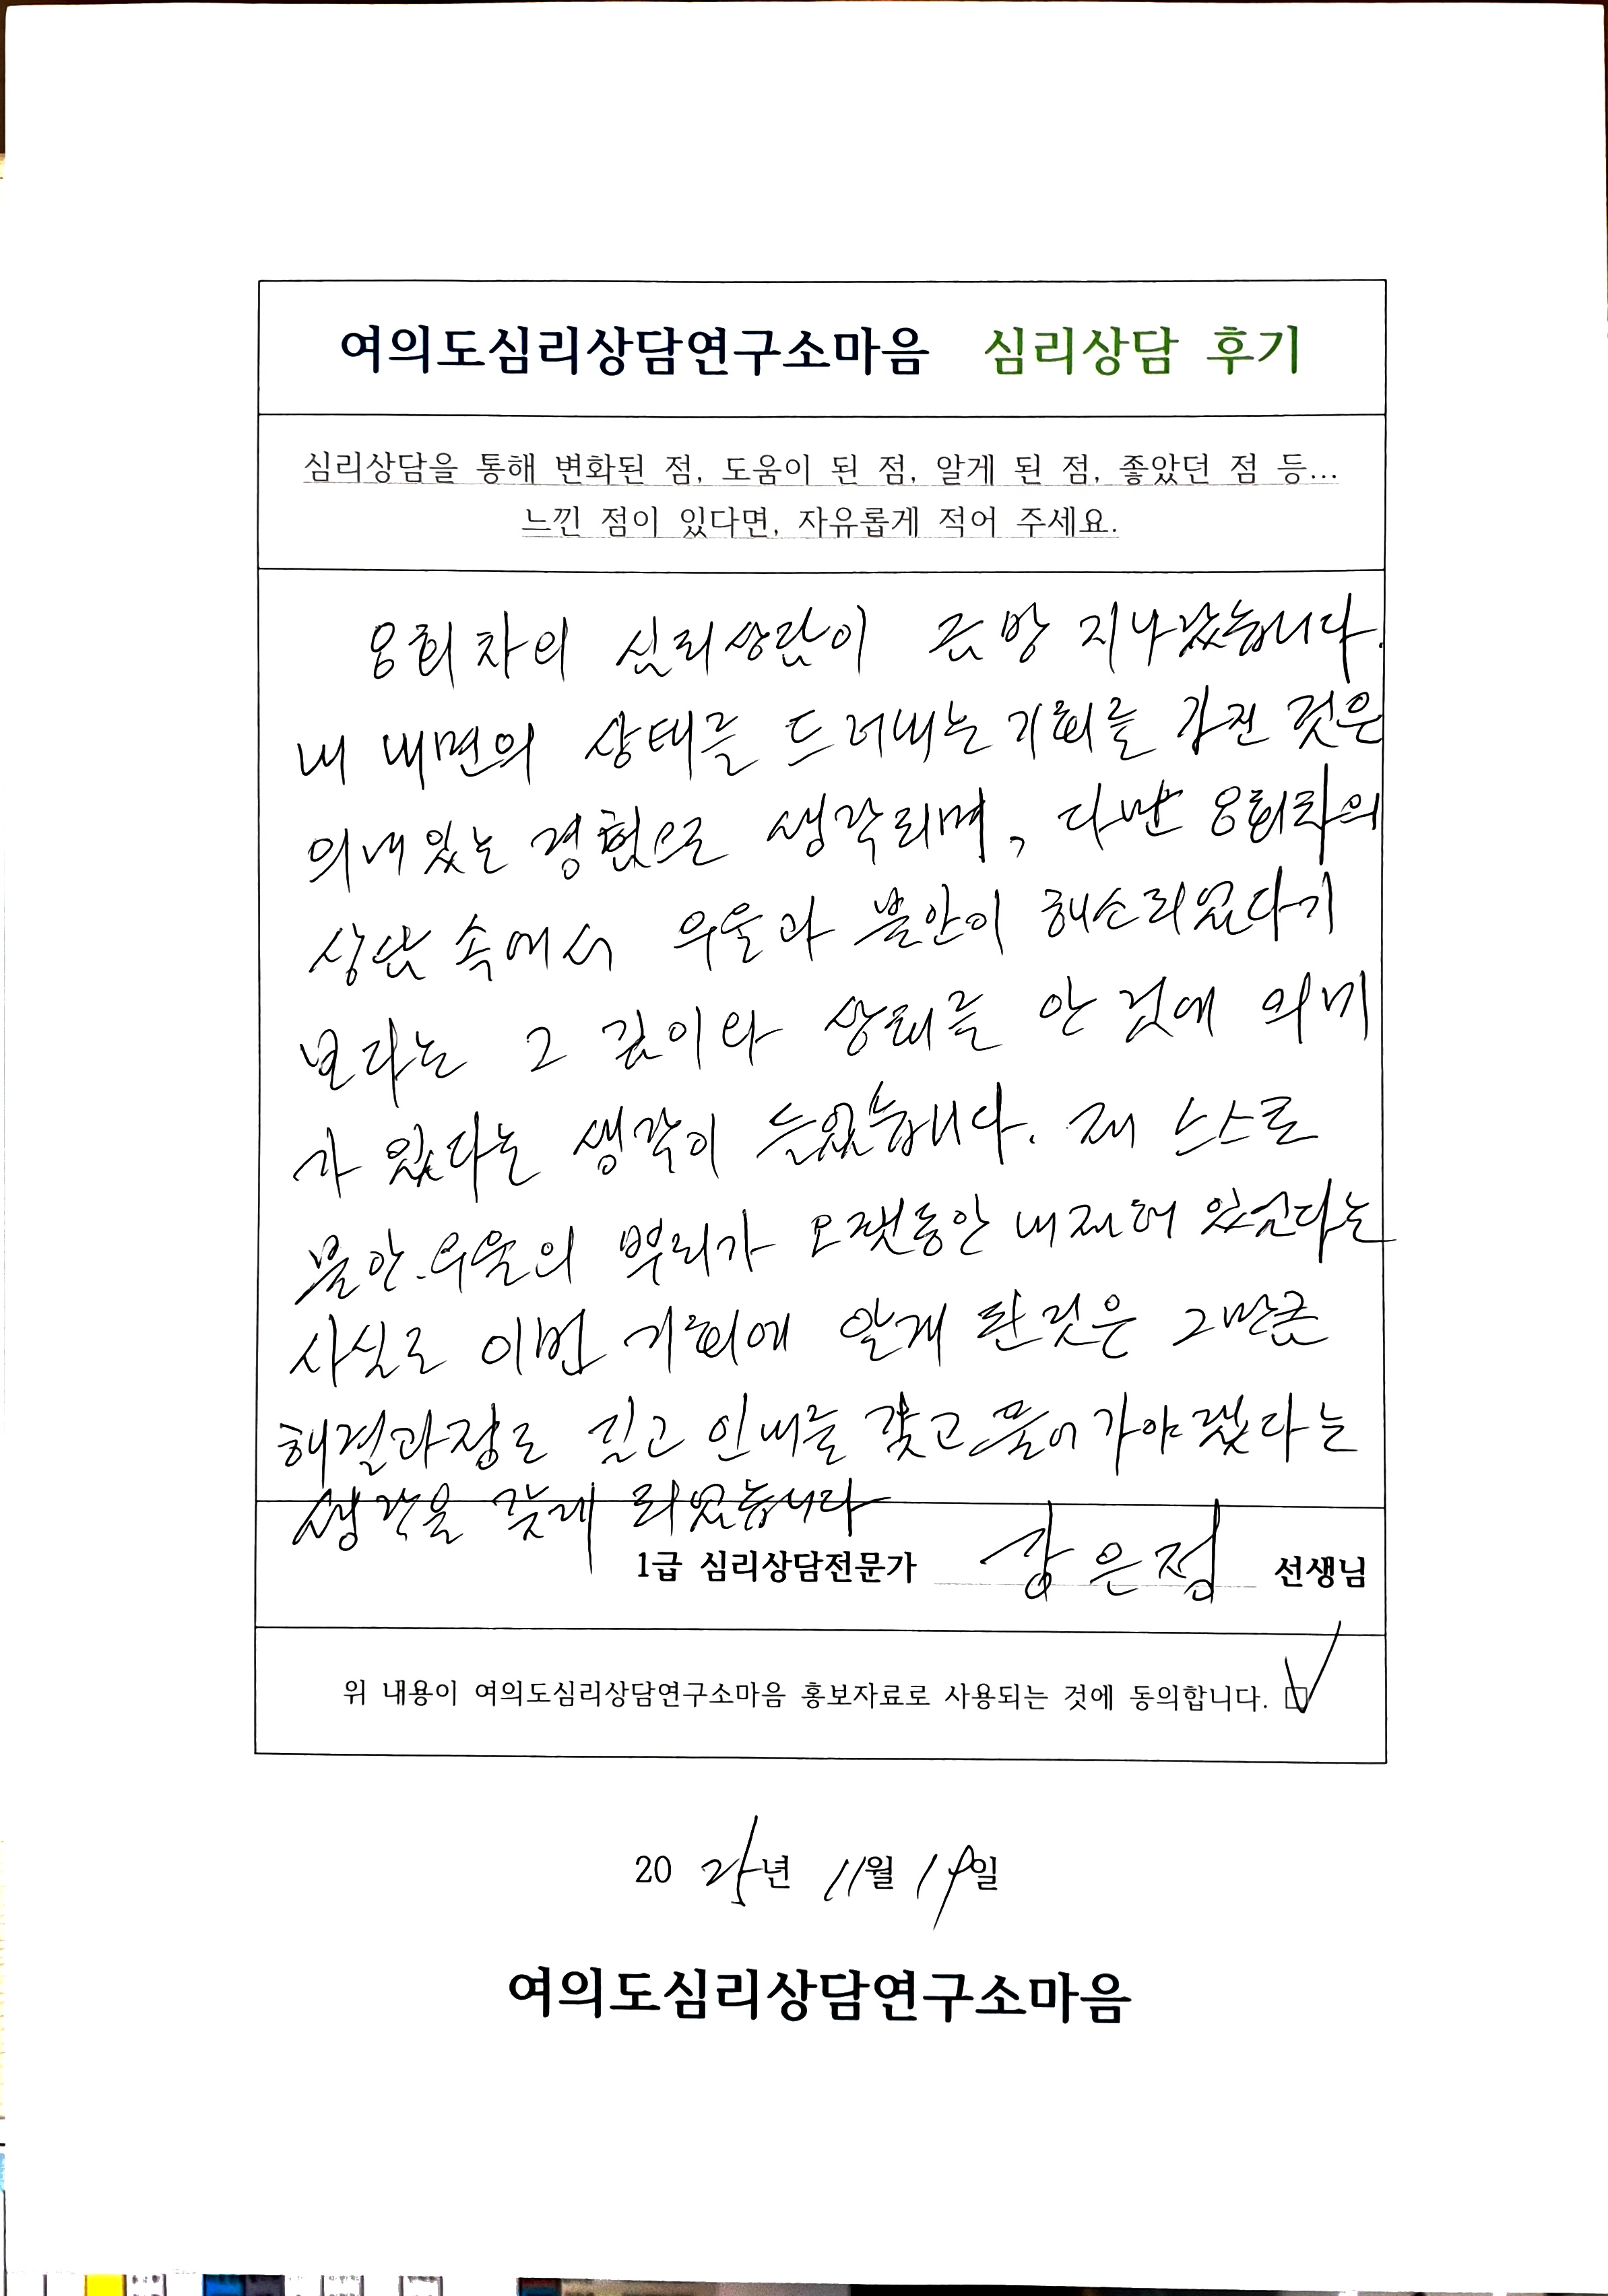 여의도심리상담연구소마음 심리상담 후기
심리상담을 통해 변화된 점, 도움이 된 점, 알게 된 점, 좋았던 점 등...
느낀 점이 있다면, 자유롭게 적어 주세요.
8회차의 심리상담이 금방 지나갔습니다.
내 내면의 상태를 드러내는 기회를 가진 것은
의미있는 경험으로 생각되며, 다만 8회차의
상담 속에서 우울과 불안이 해소되었다기
보다는 그 깊이와 상태를 안 것에 의미
가 있다는 생각이 들었습니다. 제 스스로
불안·우울의 뿌리가 오랫동안 내재해 있었다는
사실로 이번 기회에 알게 된 것은 그만큼
해결과정도 길고 인내를 갖고 풀어가야겠다는
생각을 갖게 되었습니다
1급 심리상담전문가 강은정 선생님
위 내용이 여의도심리상담연구소마음 홍보자료로 사용되는 것에 동의합니다.
2025년 11월 19일
여의도심리상담연구소마음